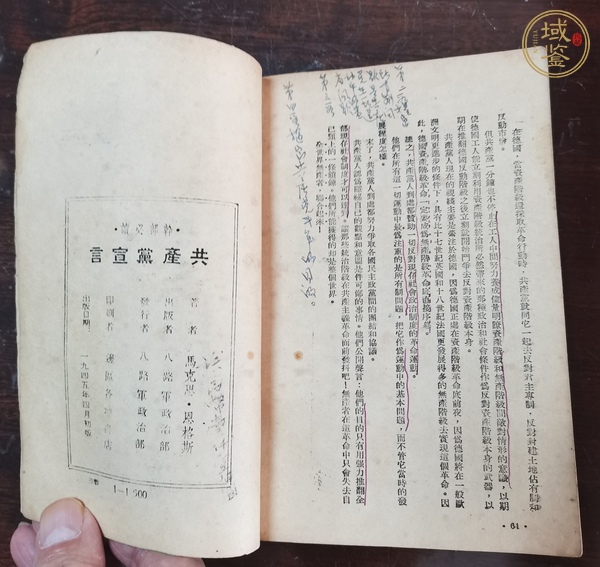 一在德國，當資產階級還採取革命行動時，共產黨就同它一起去反對君主專制，反對封建土地佔有制和
反動市儈。
但共產黨一分鐘也不
在工人中間努力養成儘量明瞭資產階級和無產階級間敵對情形的意識，以期
使德國工人能立刻利用資產階級統治所必然帶來的那種政治和社會條件作爲反對資產階級本身的武器，以
期在推翻德國反動階級之後立刻就開始鬥爭去反對資產階級本身。
共產黨人現在的視綫主要是集注於德國，因爲德國正處在資產階級革命底前夜，因爲德國將在一般歐
洲文明更進步的條件下，具有比十七世紀英國和十八世紀法國更發展得多的無產階級去實現這個革命。因
此，德國資產階級革命一定要成爲無產階級革命底直接序幕。
總之，共產黨人到處都贊助一切反對現存社會政治制度的革命運動。
他們在所有這一切運動中最爲注重的是所有制問題，把它作爲運動中的基本問題，而不管它當時的發
展程度怎樣。
末了，共產黨人到處都努力爭取各國民主政黨間的團結和協議。
共產黨人認爲隱秘自己的觀點和意圖是件可鄙的事情。他們公開聲言：他們的目的只有用强力推翻全
部現存社會制度才可以達到。讓那些統治階級在共產主義革命面前戰抖吧！無產者在這革命中只會失去自
己頸上的一條鎖鏈。他們所能獲得的却是整個世界。
全世界無產者，聯合起來！
·64·
·幹部必讀·
共產黨宣言
著者 馬克思·恩格斯
出版者 八路軍政治部
發行者 八路軍政治部
印刷者
書店
出版日期 一九四五年四月初版
1—1500
域鑒